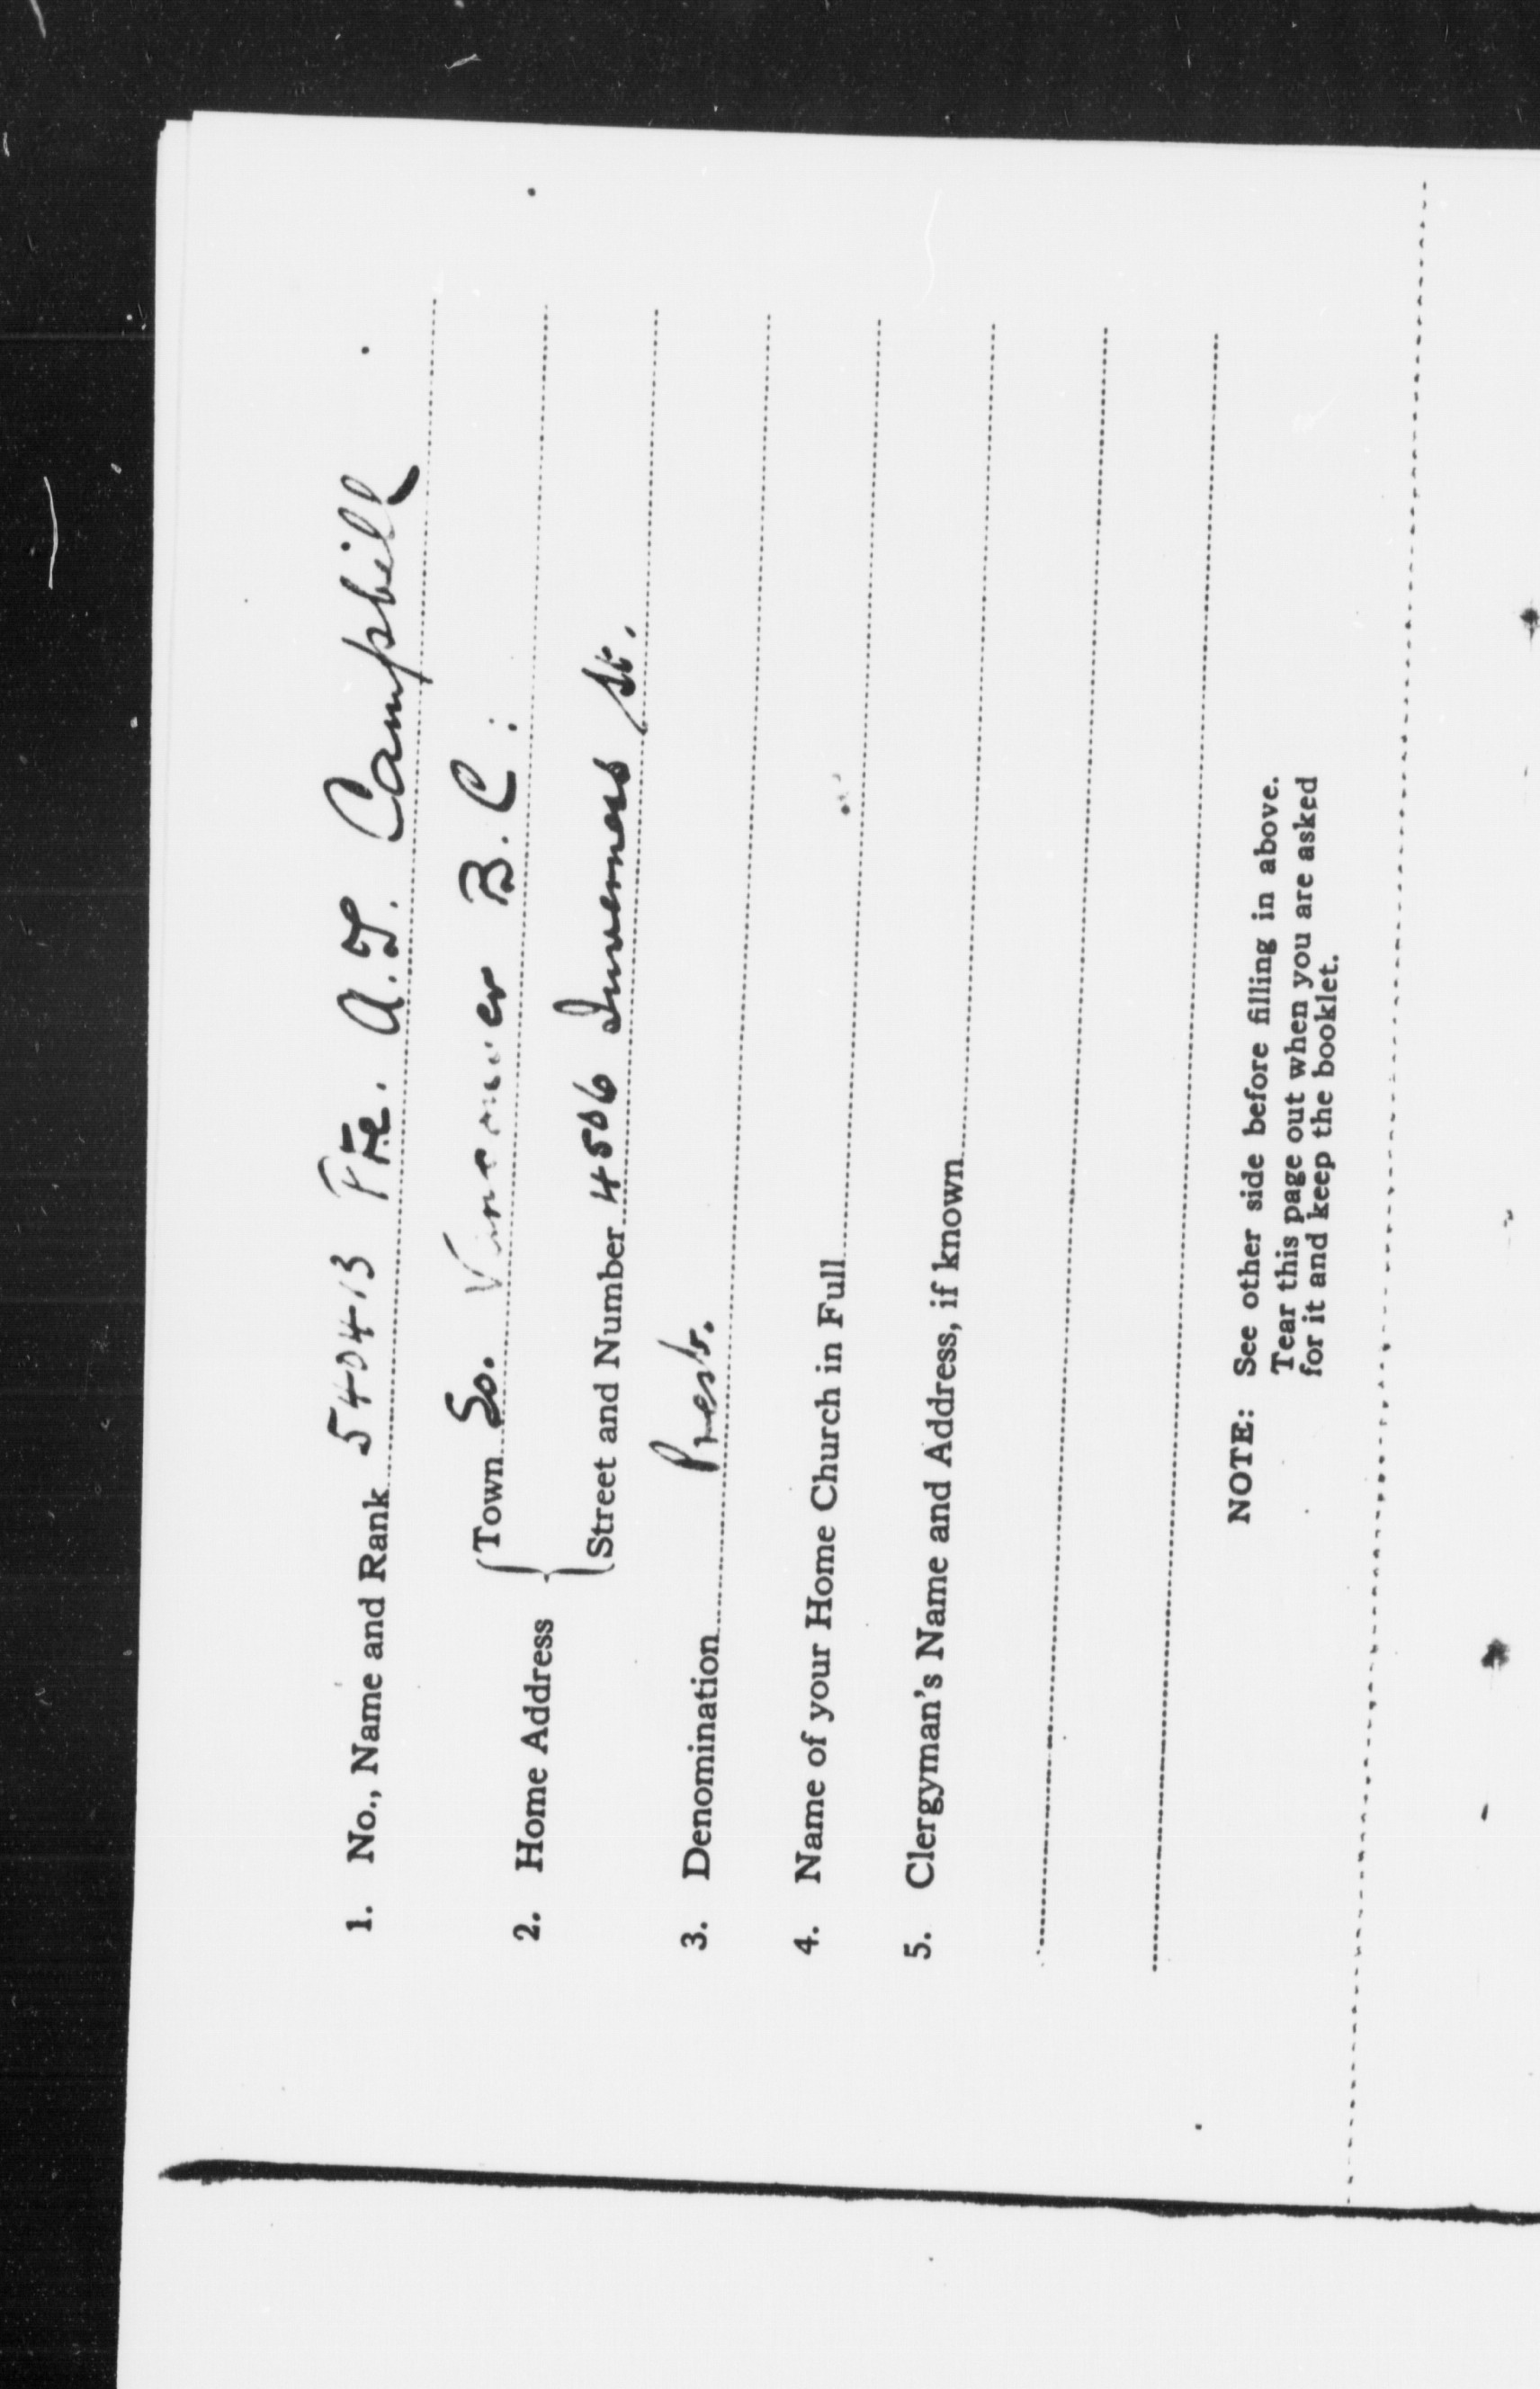 1. No., Name and Rank 540413 Pte. A.T. Campbell
2. Home Address { Town So. Vancouver B.C.
Street and Number 4506 Inverness St.
3. Denomination Presb.
4. Name of your Home Church in Full
5. Clergyman's Name and Address, if known
NOTE: See other side before filling in above.
Tear this page out when you are asked
for it and keep the booklet.